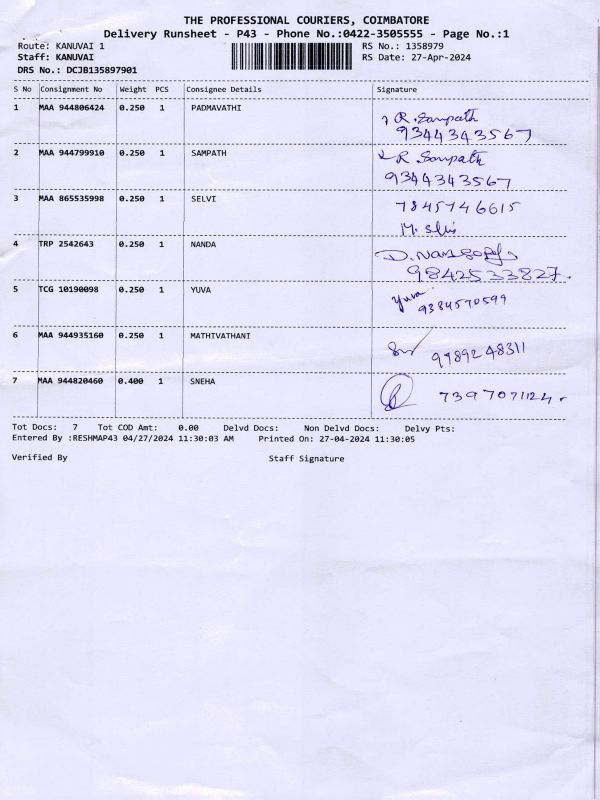 THE PROFESSIONAL COURIERS, COIMBATORE
Delivery Runsheet - P43 - Phone No.:0422-3505555 - Page No.:1
Route: KANUVAI 1 RS No.: 1358979
Staff: KANUVAI RS Date: 27-Apr-2024
DRS No.: DCJB135897901
S No Consignment No Weight PCS Consignee Details Signature
1 MAA 944806424 0.250 1 PADMAVATHI
R. Sampath
9344343567
2 MAA 944799910 0.250 1 SAMPATH R. Sampath
9344343567
3 MAA 865535998 0.250 1 SELVI 7845746615
M.
4 TRP 2542643 0.250 1 NANDA D.
9842533827.
5 TCG 10190098 0.250 1 YUVA Yuva
9384570599
6 MAA 944935160 0.250 1 MATHIVATHANI
9789248311
7 MAA 944820460 0.400 1 SNEHA
7397071124.
Tot Docs: 7 Tot COD Amt: 0.00 Delvd Docs: Non Delvd Docs: Delvy Pts:
Entered By :RESHMAP43 04/27/2024 11:30:03 AM Printed On: 27-04-2024 11:30:05
Verified By Staff Signature